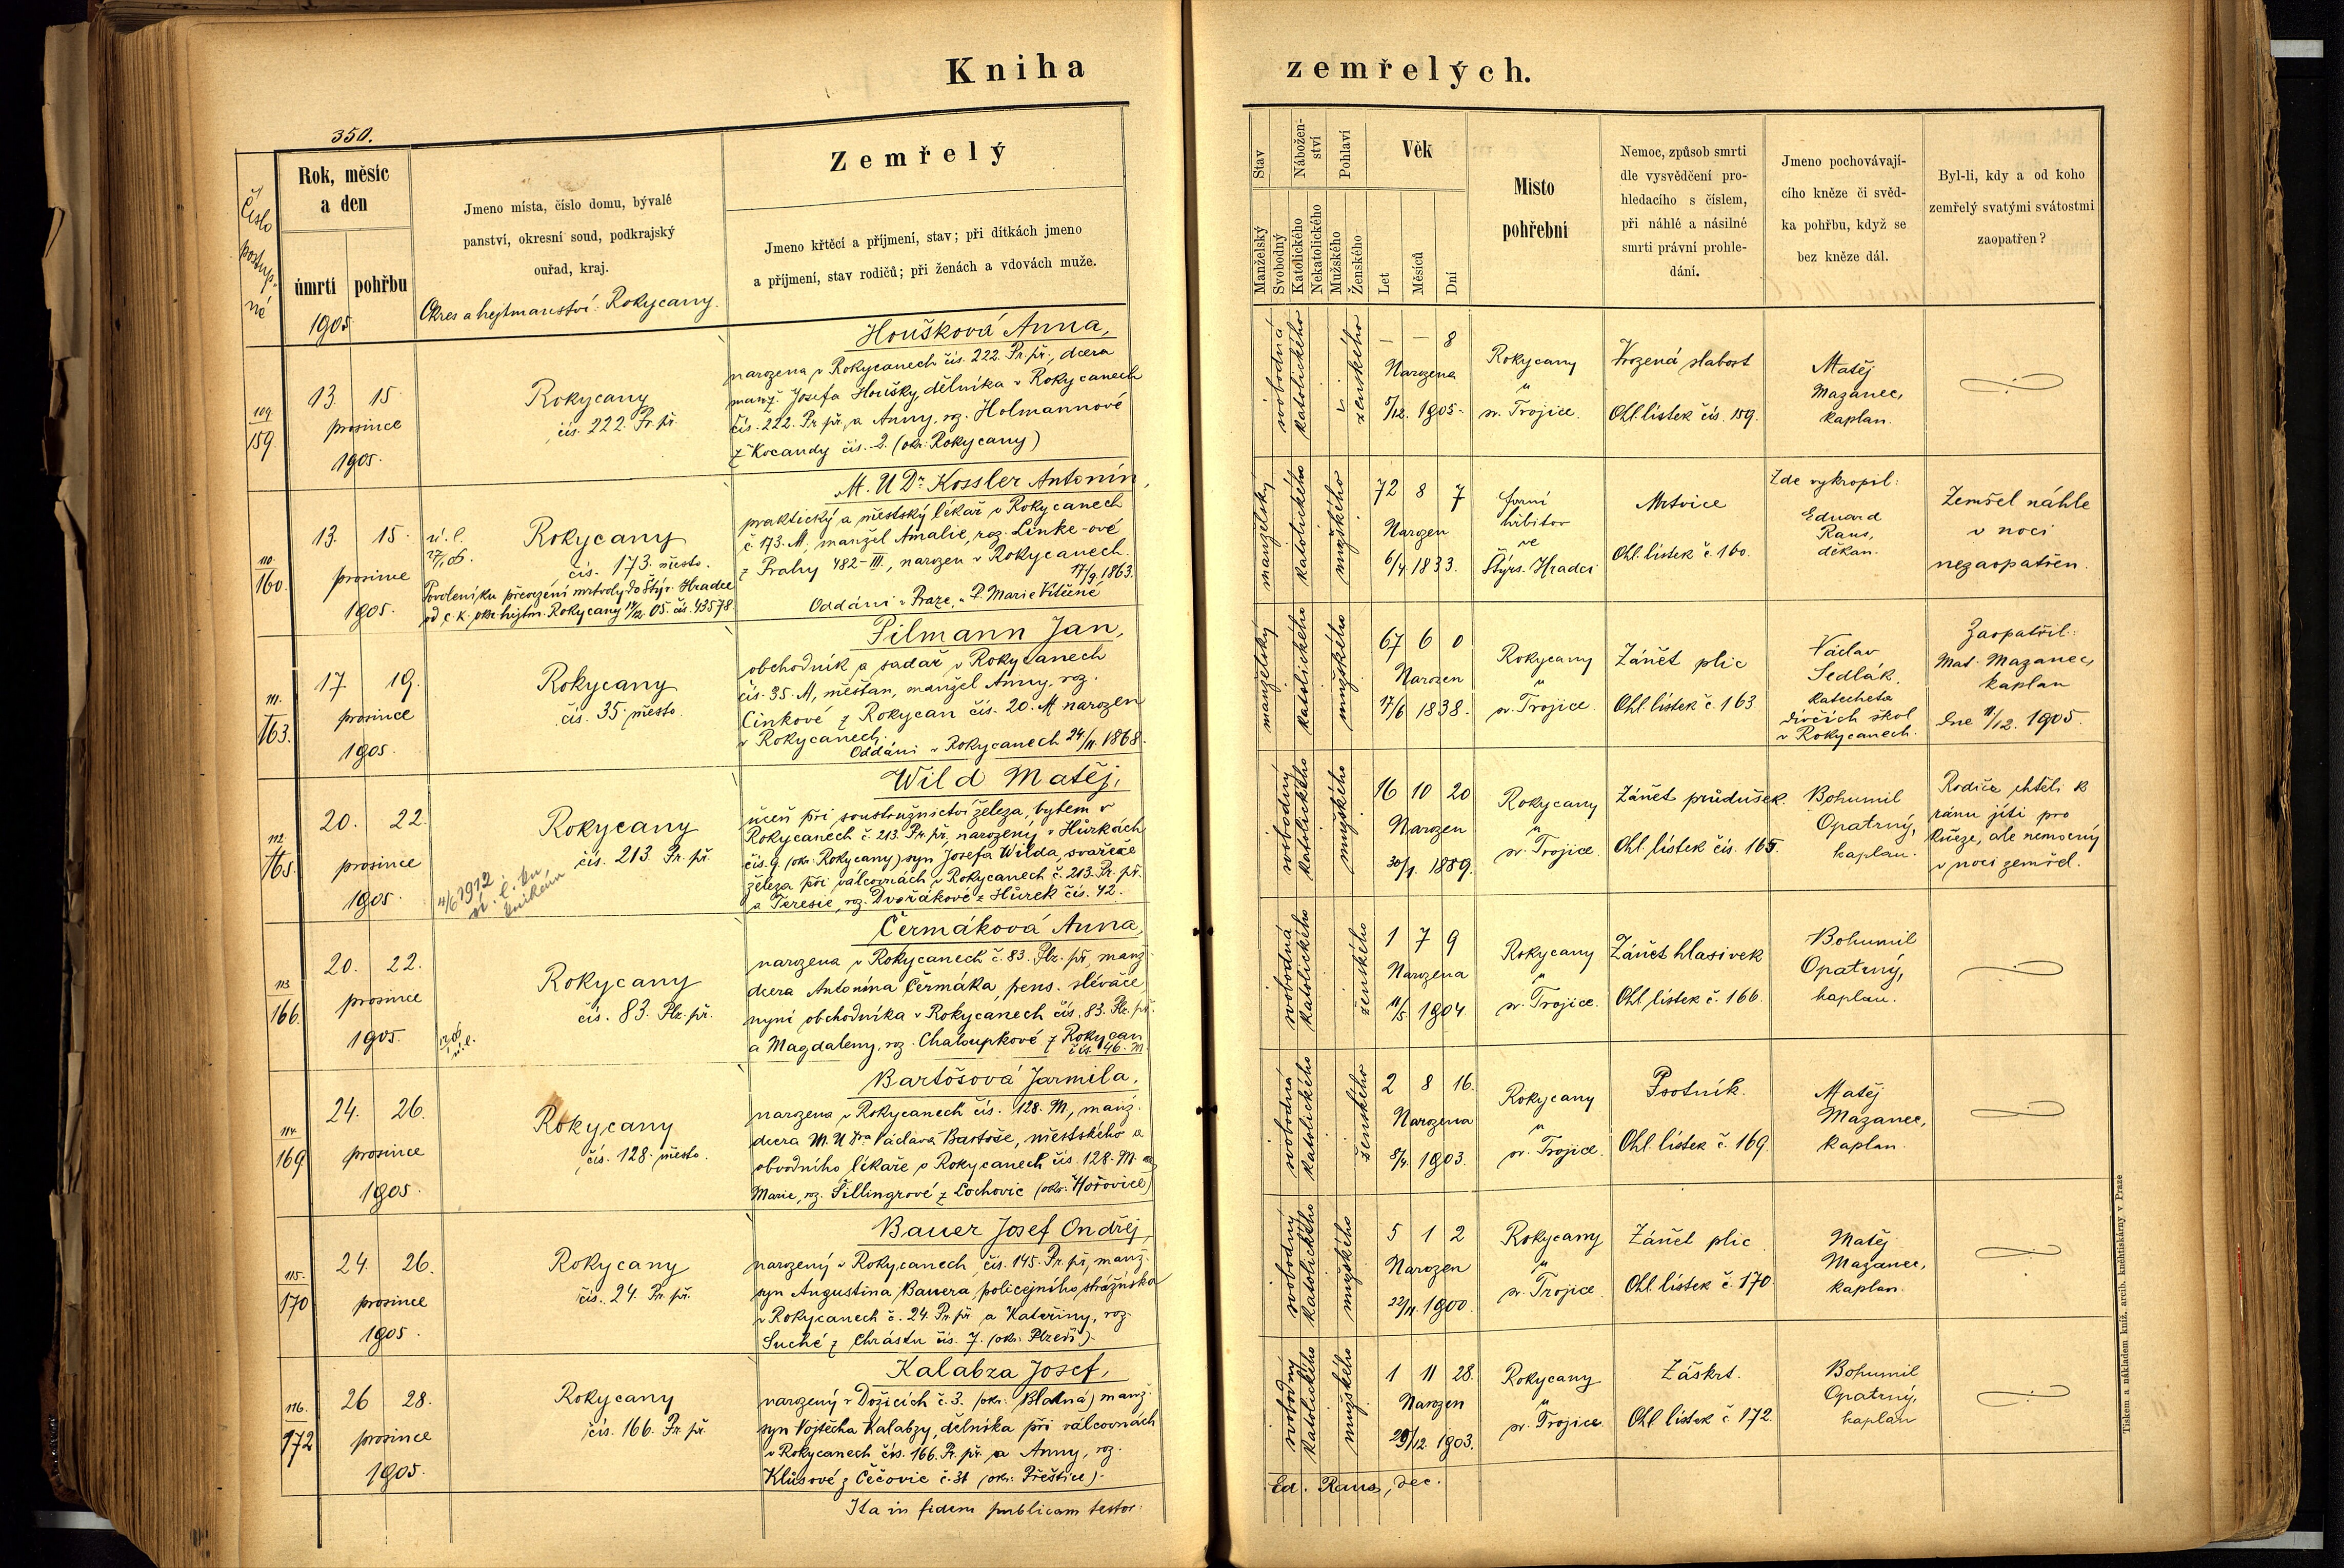 Kniha
zemřelých.
350.
Číslo
postup-
né
Rok, měsíc
a den
úmrtí
pohřbu
1905
Jmeno místa, číslo domu, bývalé
panství, okresní soud, podkrajský
ouřad, kraj.
Okres a hejtmanství: Rokycany.
Zemřelý
Jmeno křtěcí a příjmení, stav; při dítkách jmeno
a příjmení, stav rodičů; při ženách a vdovách muže.
Stav
Manželský
Svobodný
Nábožen-
ství
Katolického
Nekatolického
Pohlaví
Mužského
Ženského
Věk
Let
Měsíců
Dní
Místo
pohřební
Nemoc, způsob smrti
dle vysvědčení pro-
hledacího s číslem,
při náhlé a násilné
smrti právní prohle-
dání.
Jmeno pochovávají-
cího kněze či svěd-
ka pohřbu, když se
bez kněze dál.
Byl-li, kdy a od koho
zemřelý svatými svátostmi
zaopatřen?
109.
159.
13. 15.
prosince
1905.
Rokycany
čís. 222. Pr. př.
Houšková Anna,
narozena v Rokycanech čís. 222. Pr. př., dcera
manž. Josefa Houšky, dělníka v Rokycanech
čís. 222. Pr. př., a Anny, roz. Holmannové
z Kocandy čís. 2. (okr. Rokycany)
svobodná
katolického
ženského
— — 8
Narozena
5/12. 1905.
Rokycany
u
sv. Trojice.
Vrozená slabost
Ohl. lístek čís. 159.
Matěj
Mazanec,
kaplan.
110.
160.
13. 15.
prosince
1905.
ú. l.
Rokycany
čís. 173. město.
Povolení ku převezení mrtvoly do Štýr. Hradce
od c. k. okr. hejtm. Rokycany 14/12 05. čís. 43578
M. U Dr. Kossler Antonín,
praktický a městský lékař v Rokycanech
č. 173. M, manžel Amalie, roz. Linke-ové
z Prahy 482-III, narozen v Rokycanech.
17/9. 1863.
Oddáni v Praze, u P. Marie Vítězné
manželský
katolického
mužského
72 8 7
Narozen
6/4 1833.
hřbitov
ve
Štýrs. Hradci
Mrtvice
Ohl. lístek č. 160.
Zde vykropil:
Eduard
Raus,
děkan.
Zemřel náhle
v noci
nezaopatřen.
111.
163.
17. 19.
prosince
1905.
Rokycany
čís. 35. město.
Pilmann Jan,
obchodník a sadař v Rokycanech
čís. 35. M, měšťan, manžel Anny, roz.
Cinkové z Rokycan čís. 20. M narozen
v Rokycanech.
Oddáni v Rokycanech 24/11. 1868.
manželský
katolického
mužského
67 6 0
Narozen
17/6 1838.
Rokycany
u
sv. Trojice.
Zánět plic
Ohl. lístek č. 163
Václav
Sedlák,
katecheta
dívčích škol
v Rokycanech.
Zaopatřil:
Mat. Mazanec,
kaplan
dne 11/12. 1905.
112.
165.
20. 22.
prosince
1905.
4/6 1912
Rokycany
čís. 213. Pr. př.
Wild Matěj,
učeň při soustružnictví železa, bytem v
Rokycanech č. 213. Pr. př., narozený v Hůrkách
čís. 9. (okr. Rokycany) syn Josefa Wilda, svářeče
železa při válcovnách v Rokycanech č. 213. Pr. př.
a Teresie, roz. Dvořákové z Hůrek čís. 42.
svobodný
katolického
mužského
16 10 20
Narozen
30/1. 1889.
Rokycany
u
sv. Trojice.
Zánět průdušek.
Ohl. lístek čís. 165.
Bohumil
Opatrný,
kaplan.
Rodiče chtěli k
ránu jíti pro
kněze, ale nemocný
v noci zemřel.
113
166.
20. 22.
prosince
1905.
Rokycany
čís. 83. Plz. př.
Čermáková Anna,
narozena v Rokycanech č. 83. Plz. př., manž.
dcera Antonína Čermáka, pens. slévače,
nyní obchodníka v Rokycanech čís. 83. Plz. př.
a Magdaleny, roz. Chaloupkové z Rokycan
čís. 46. M.
svobodná
katolického
ženského
1 7 9
Narozena
11/5 1904.
Rokycany
u
sv. Trojice.
Zánět hlasivek
Ohl. lístek č. 166.
Bohumil
Opatrný,
kaplan.
114.
169
24. 26.
prosince
1905.
Rokycany
čís. 128. město.
Bartošová Jarmila,
narozena v Rokycanech čís. 128. M, manž.
dcera M. U Dra Václava Bartoše, městského a
obvodního lékaře v Rokycanech čís. 128. M. a
Marie, roz. Šillingrové z Lochovic (okr. Hořovice)
svobodná
katolického
ženského
2 8 16.
Narozena
8/4. 1903.
Rokycany
u
sv. Trojice.
Psotník.
Ohl. lístek č. 169.
Matěj
Mazanec,
kaplan.
115.
170
24. 26.
prosince
1905.
Rokycany
čís. 24. Pr. př.
Bauer Josef Ondřej,
narozený v Rokycanech, čís. 145. Pr. př., manž.
syn Augustina Bauera, policejního strážníka
v Rokycanech č. 24. Pr. př. a Kateřiny, roz.
Suché z Chrástu čís. 7. (okr. Plzeň).
svobodný
katolického
mužského
5 1 2
Narozen
22/11. 1900.
Rokycany
u
sv. Trojice.
Zánět plic
Ohl. lístek č. 170.
Matěj
Mazanec,
kaplan.
116.
172
26 28.
prosince
1905.
Rokycany
čís. 166. Pr. př.
Kalabza Josef,
narozený v Dožicích č. 3. (okr. Blatná) manž.
syn Vojtěcha Kalabzy, dělníka při válcovnách
v Rokycanech čís. 166. Pr. př. a Anny, roz.
Klůsové z Čečovic č. 31 (okr. Přeštice).
svobodný
katolického
mužského
1 11 28.
Narozen
29/12. 1903.
Rokycany
u
sv. Trojice.
Záškrt.
Ohl. lístek č. 172.
Bohumil
Opatrný,
kaplan
Ita in fidem publicam testor:
Ed. Raus, dec.
Tiskem a nákladem kníž. arcib. knihtiskárny v Praze